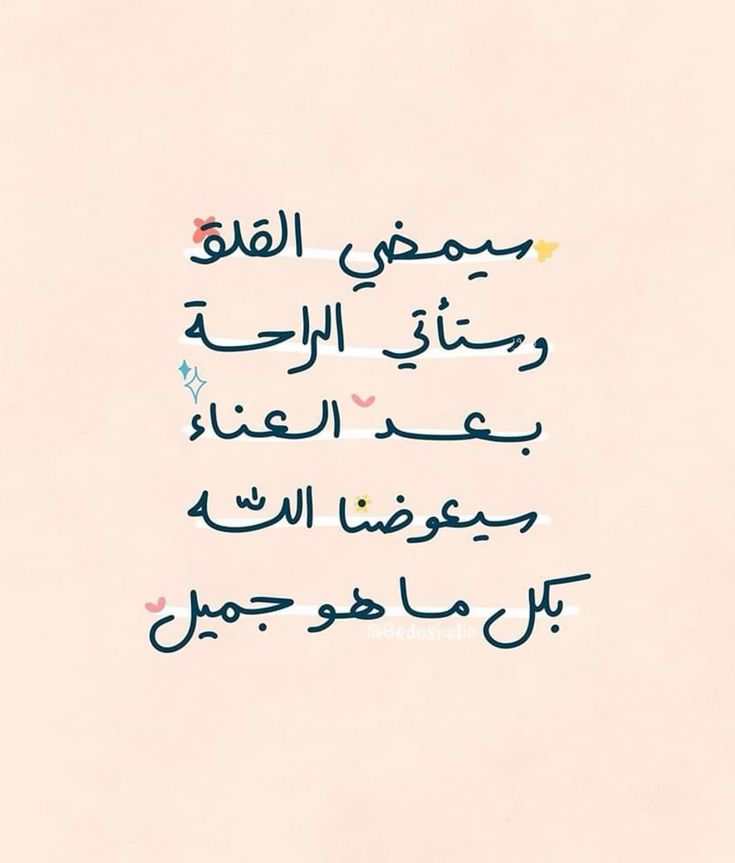 سيمضي القلق
وستأتي الراحة
بعد العناء
سيعوضنا الله
بكل ما هو جميل
@8edostudio